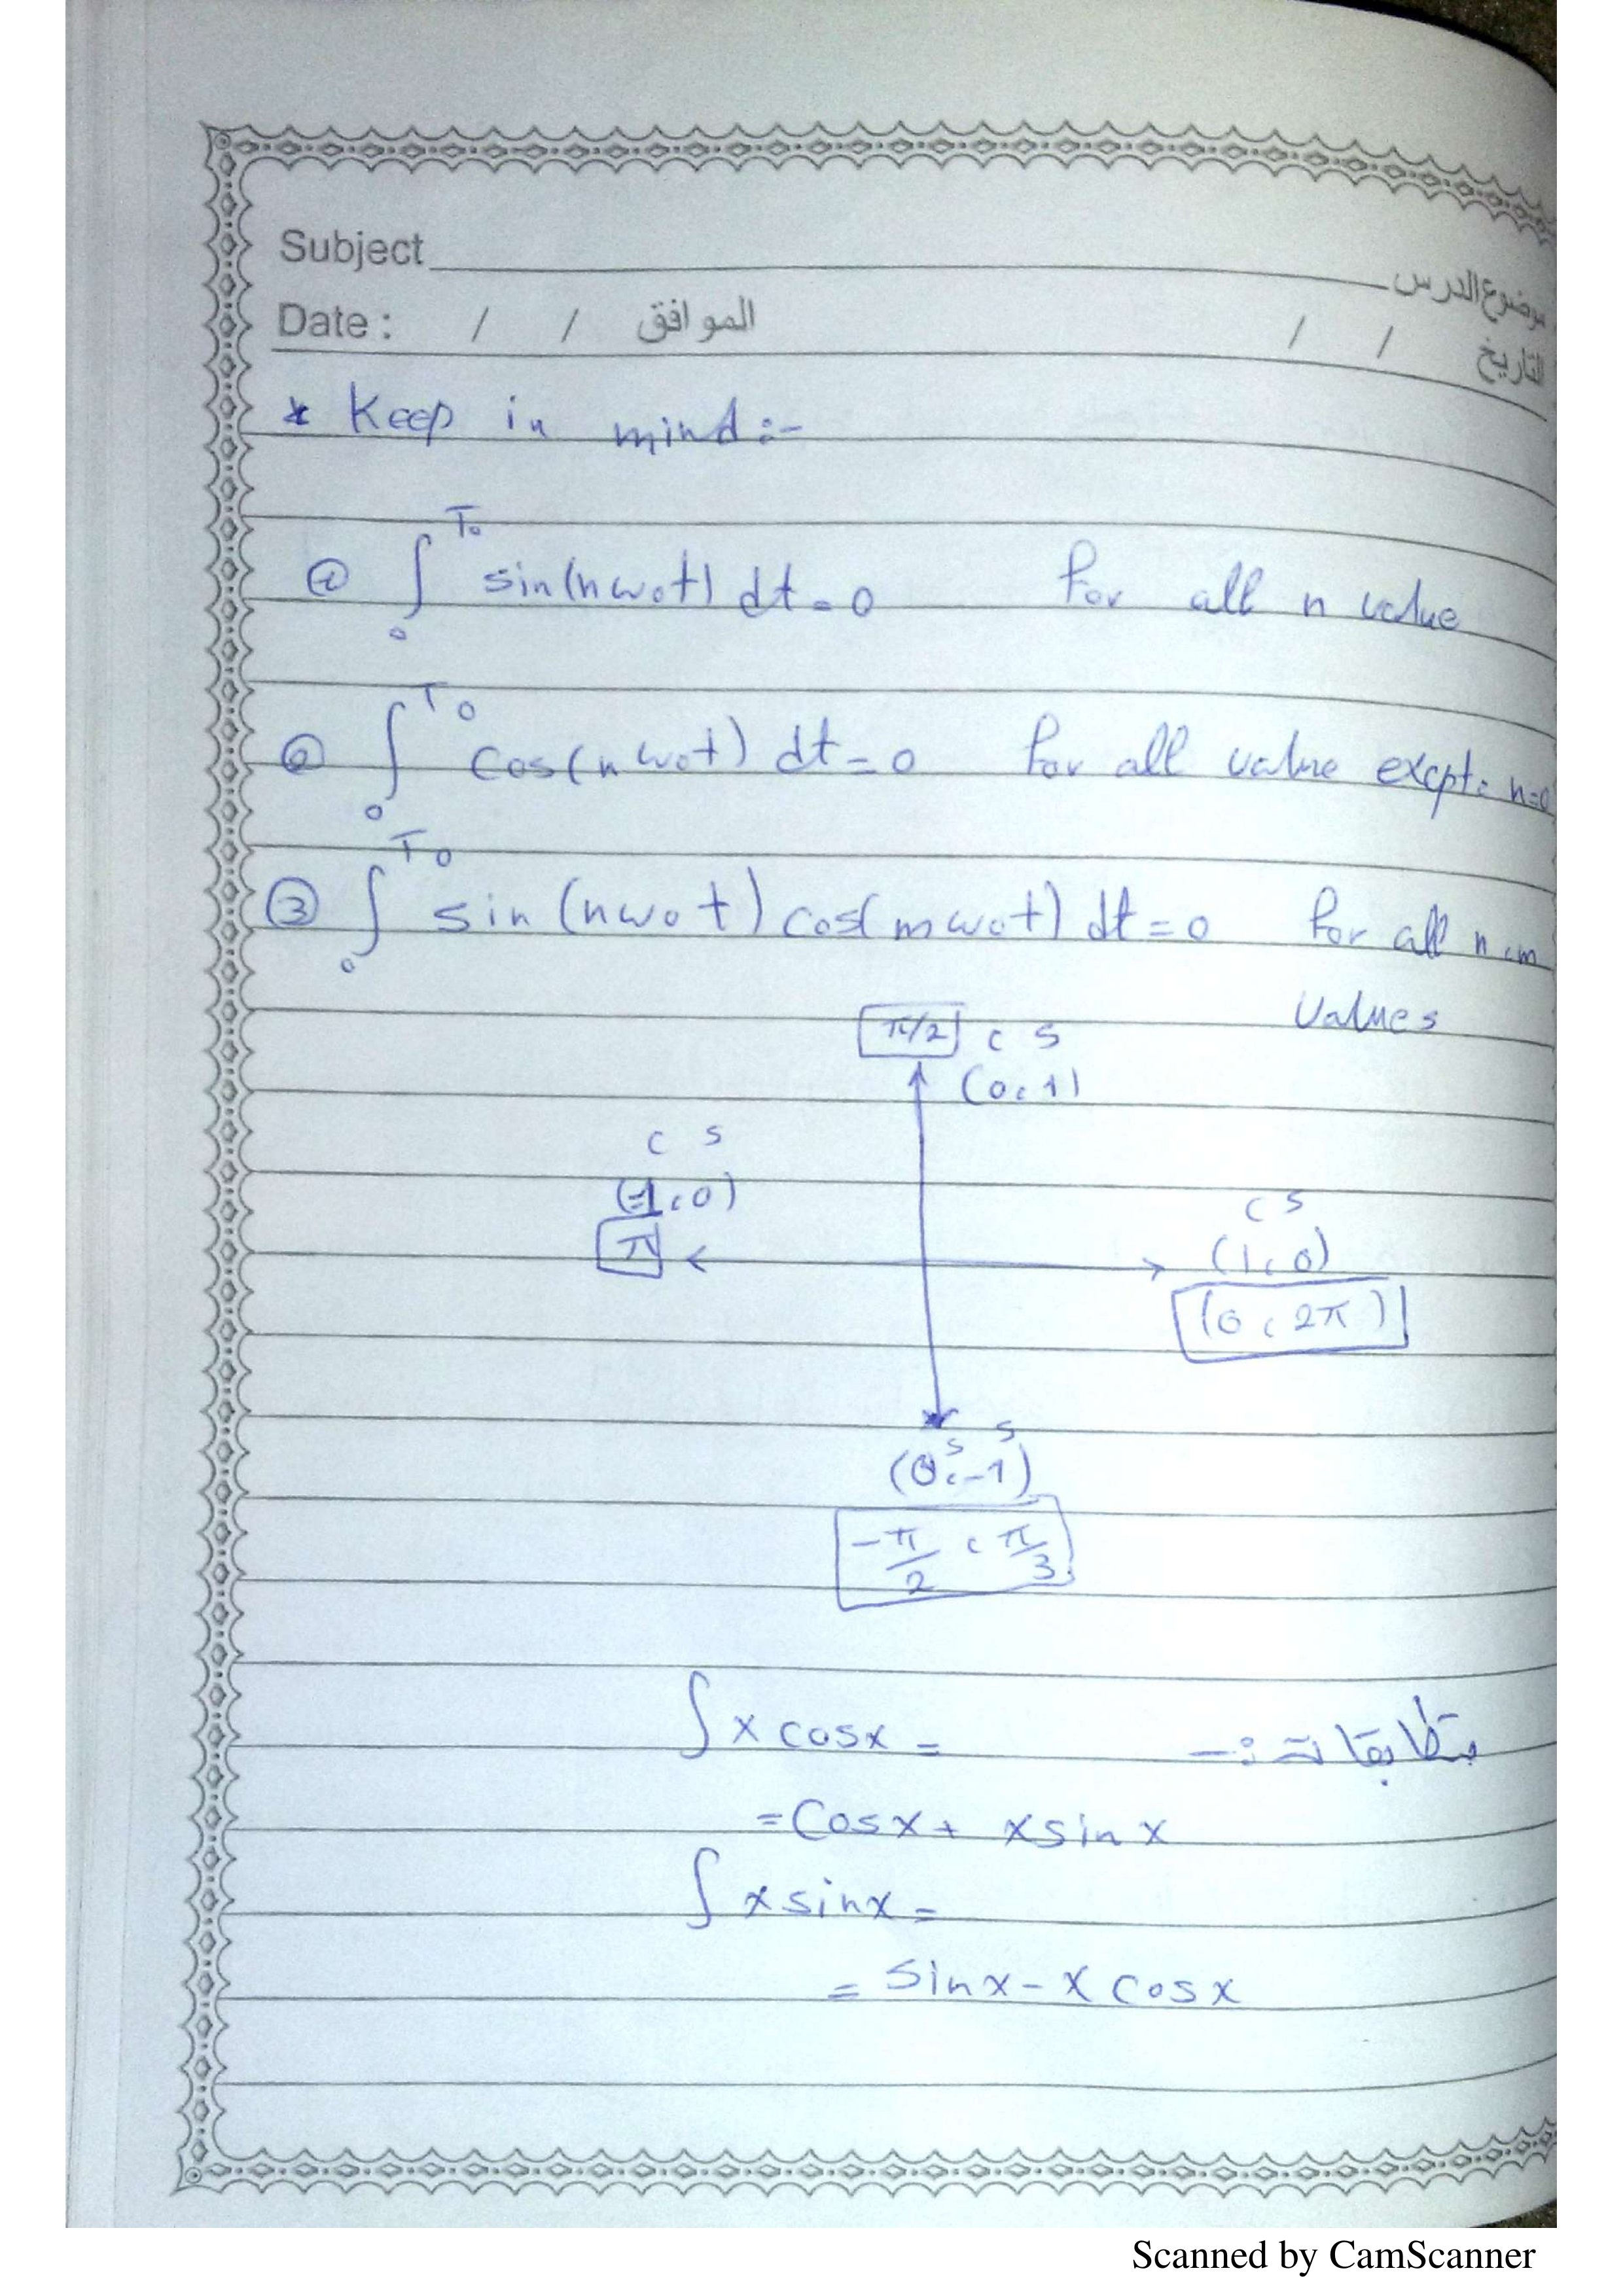 Subject موضوع الدرس
Date : / / الموافق / / التاريخ
* Keep in mind :-
① ∫₀^T₀ sin(nω₀t) dt = 0 for all n value
② ∫₀^T₀ cos(nω₀t) dt = 0 for all value excpt: n=0
③ ∫₀^T₀ sin(nω₀t) cos(mω₀t) dt = 0 for all n,m
values
π/2 c s
(0,1)
c s
(-1,0)
π
c s
(1,0)
(0, 2π)
s s
(0,-1)
-π/2 , π/3
∫ x cosx = متطابقات :-
= Cosx + x sin x
∫ x sinx =
= sinx - x cosx
Scanned by CamScanner